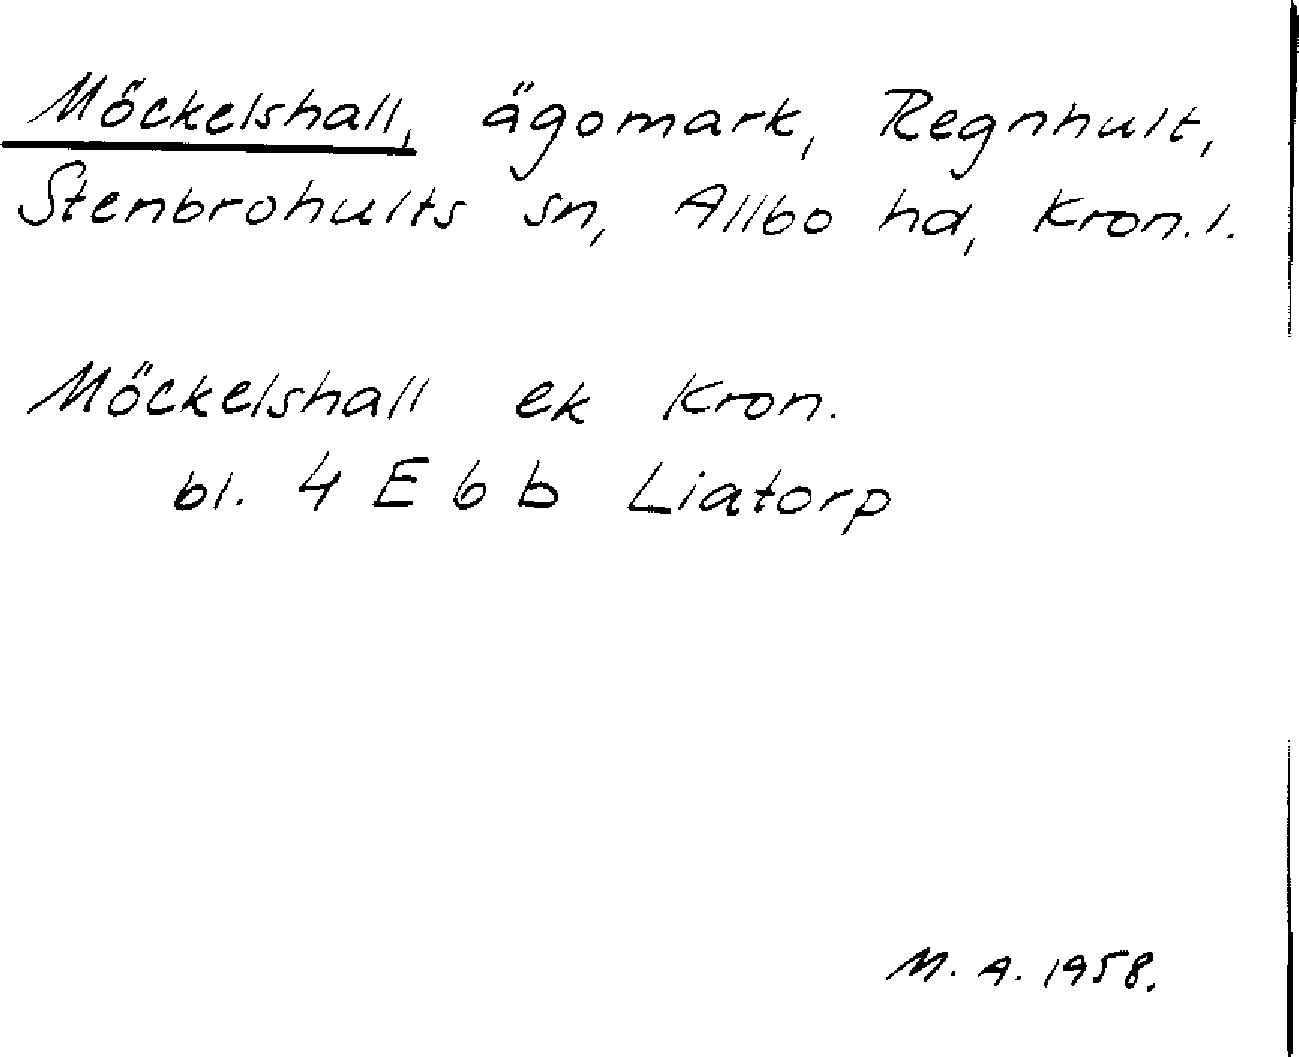 Möckelshall, ägomark, Regnhult,
Stenbrohults sn, Allbo hd, Kron. l.
Möckelshall ek Kron.
bl. 4 E 6 b Liatorp
M. A. 1958.